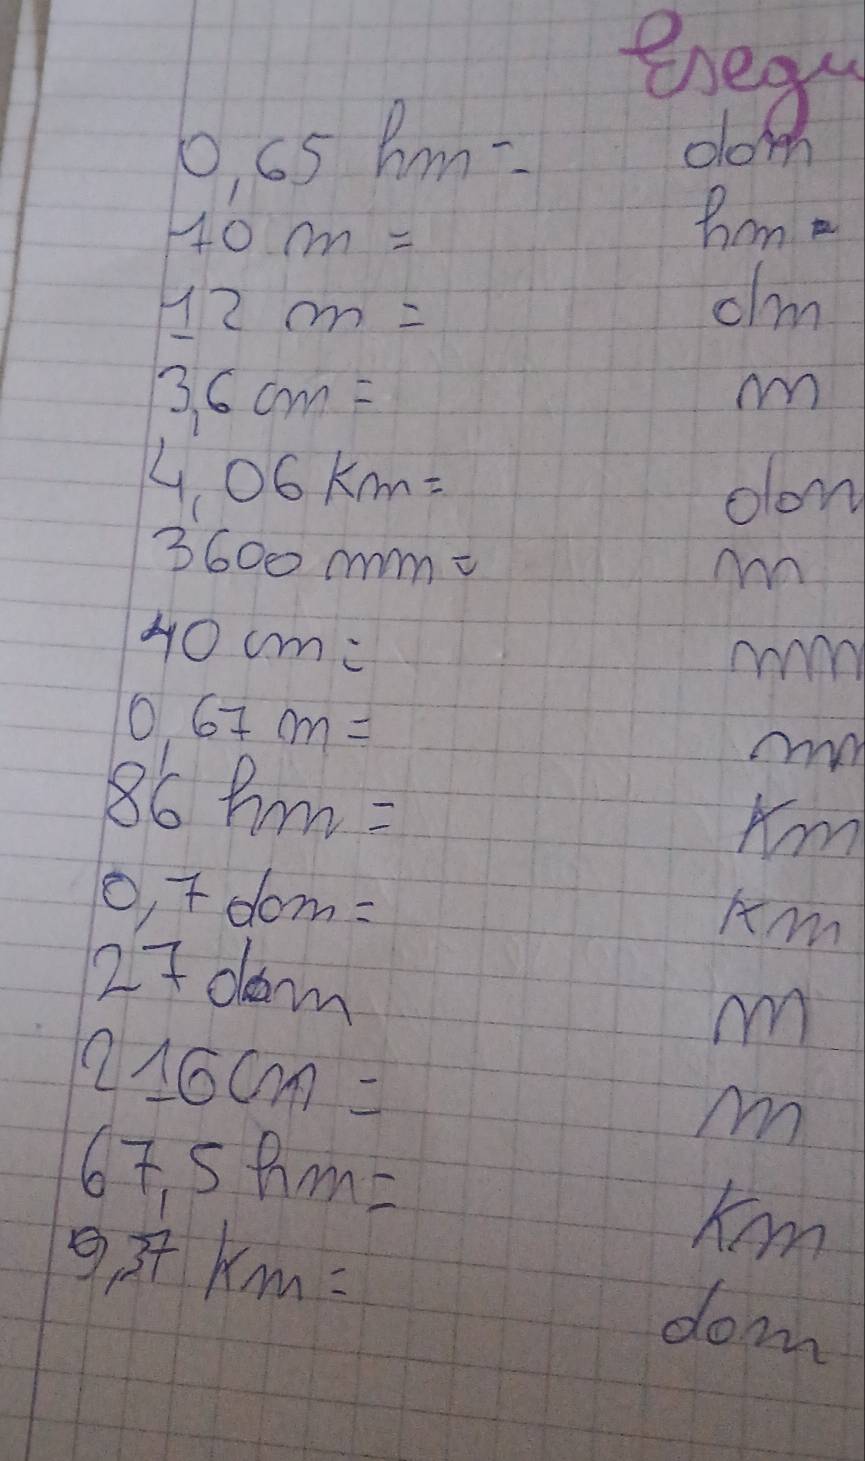 Esegu
0,65 hm= dam
10 m = hm
12 m = dm
3,6 cm = m
4,06 Km= dam
3600 mm= m
40 cm= mm
0,67 m =
86 hm = Km
0,7 dam= Km
27 dam m
216 cm = m
67,5 hm= Km
9,37 Km= dam